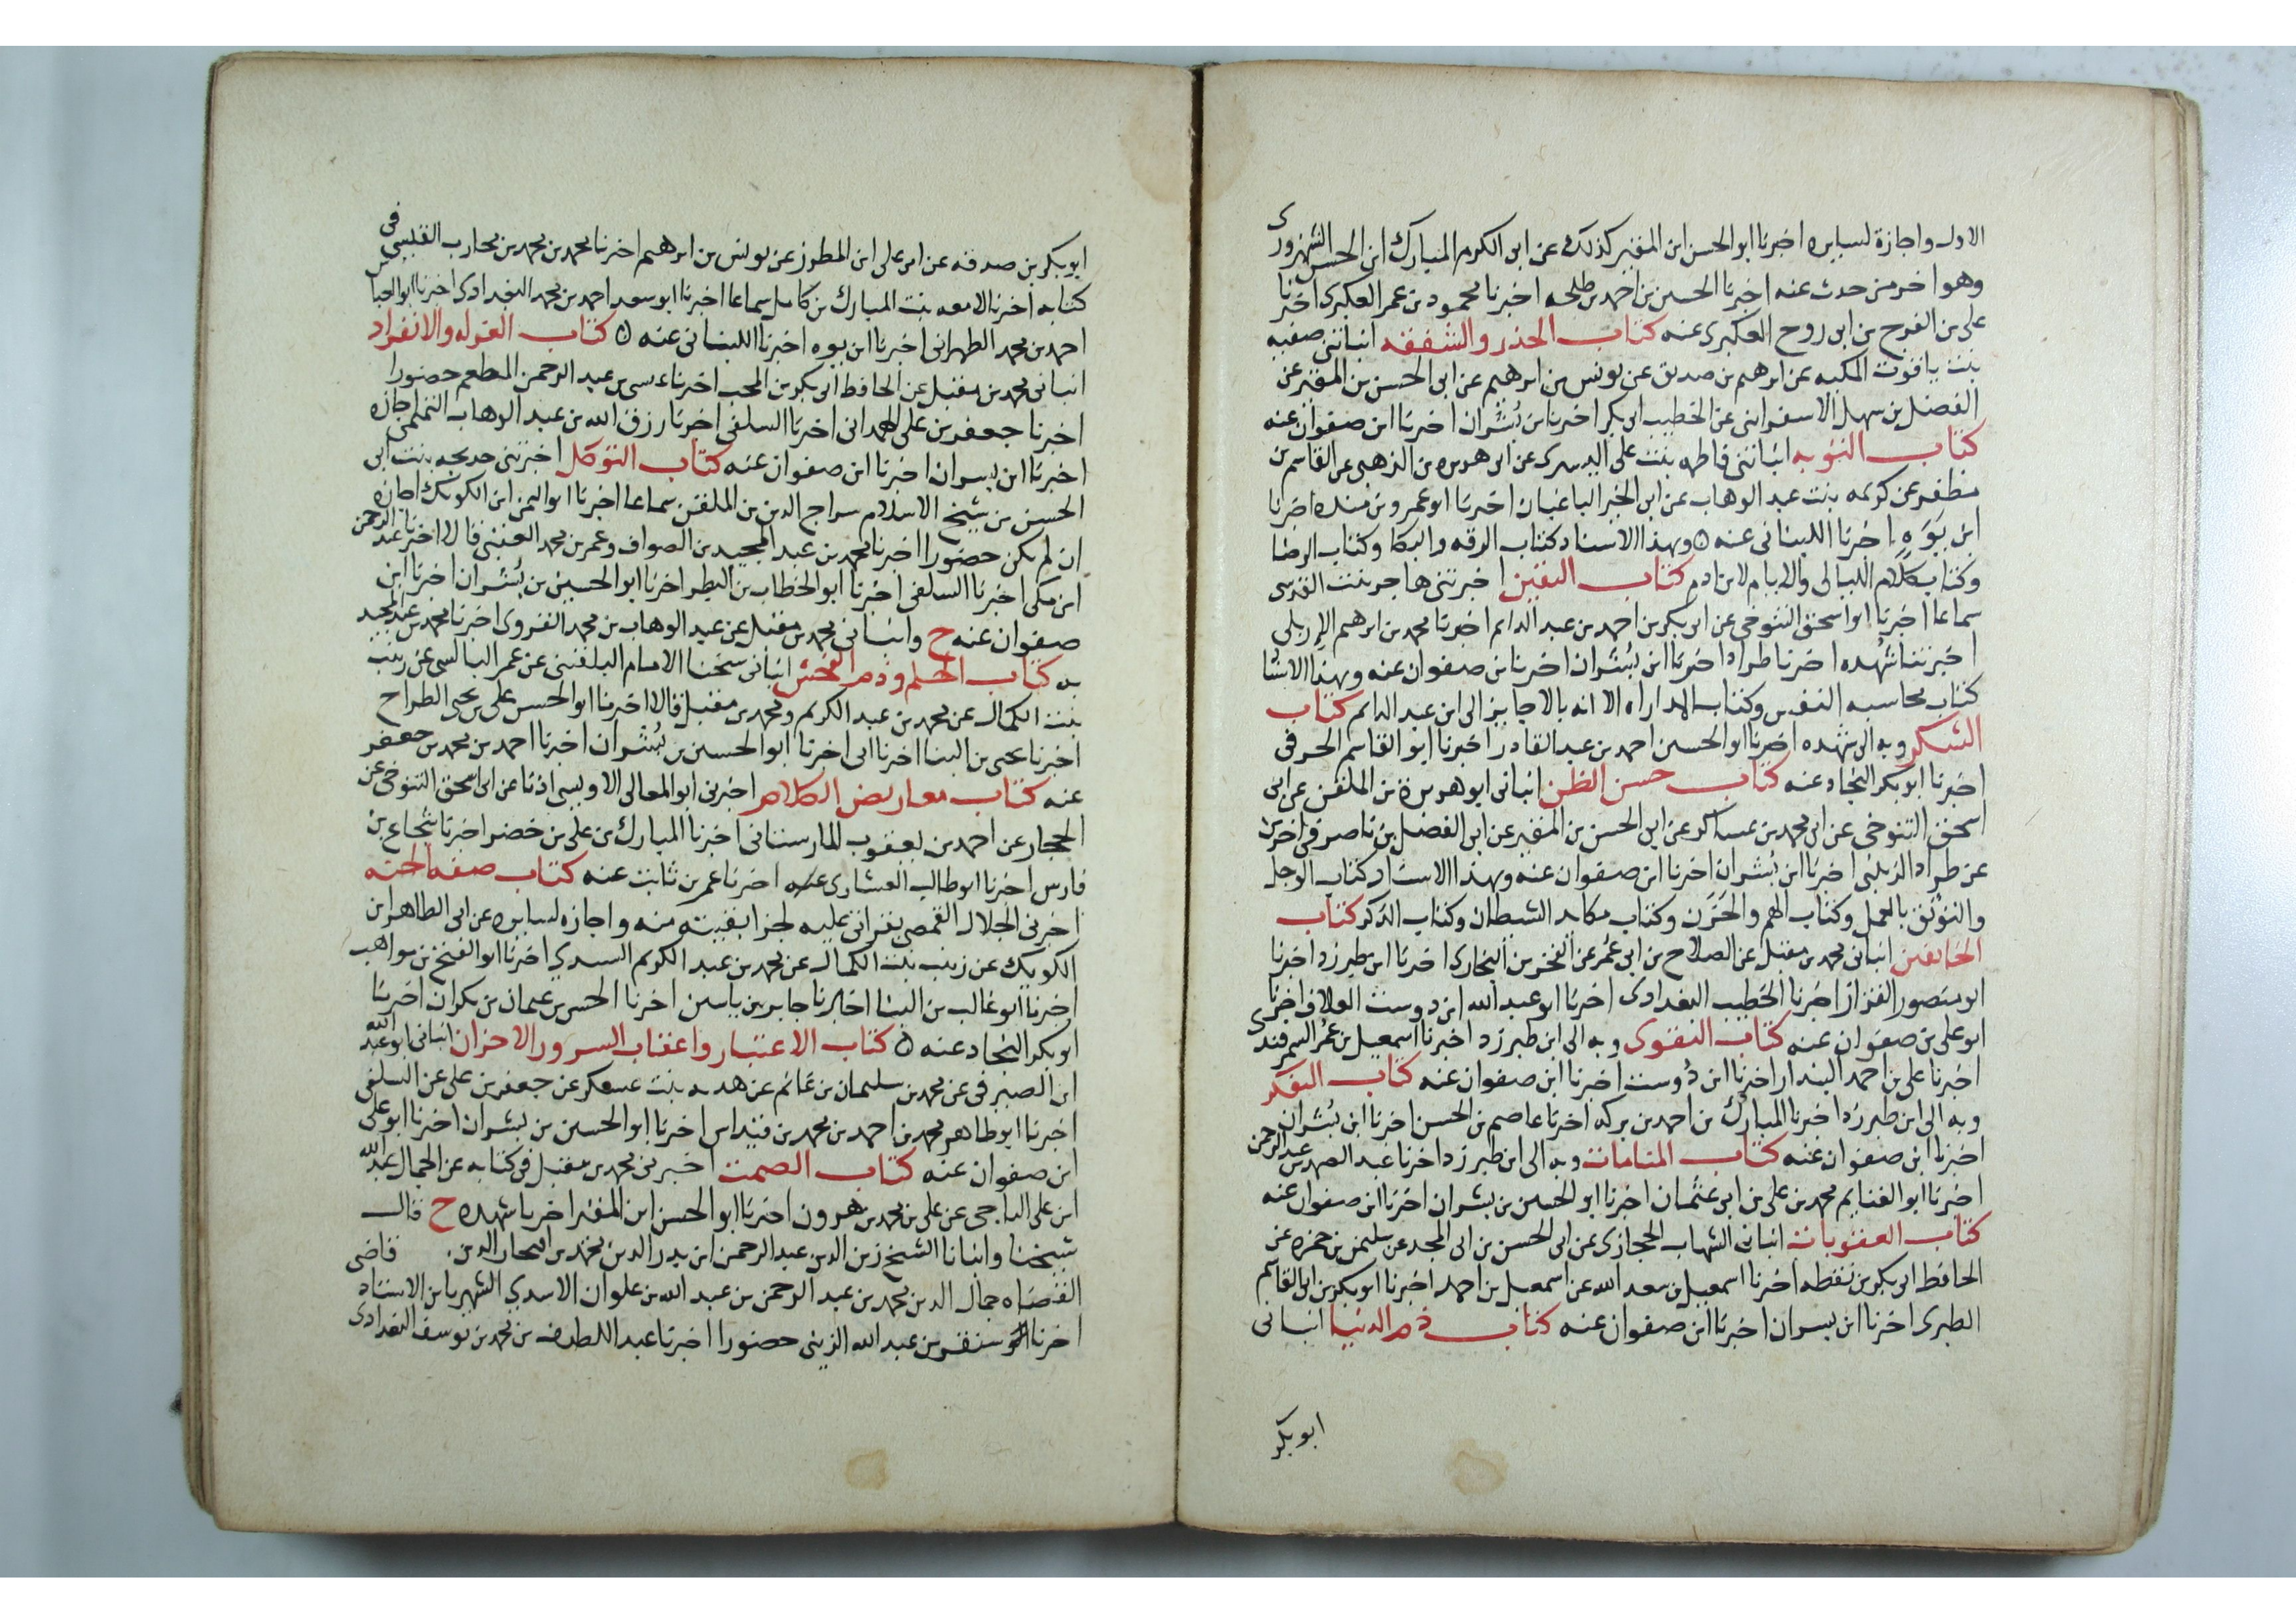 الاول واجازة لسايره اخبرنا ابو الحسن ابن المقير كذلك عن ابى الكرم المبارك ابن الحسن الشهرزورى
وهو اخر من حدث عنه اخبرنا الحسين بن احمد بن طلحه اخبرنا محمود بن عمر العكبرى اخبرنا
على بن الفرج بن ابى روح العكبرى عنه كتاب الحذر والشفقه انباتنى صفيه
بنت ياقوت المكيه عن ابرهيم بن صديق عن يونس بن ابرهيم عن ابى الحسن بن المقير عن
الفضل بن سهل الاسفراينى عن الخطيب ابى بكر اخبرنا بن بُشران اخبرنا ابن صفوان عنه
كتاب التوبه انباتنى فاطمه بنت على اليسيرى عن ابى هريره بن الذهبى عن القاسم بن
مظفر عن كريمه بنت عبد الوهاب عن ابى الخير الباغبان اخبرنا ابو عمرو بن منده اخبرنا
ابن يَوَه اخبرنا اللبنانى عنه ۞ وبهذا الاسناد كتاب الرقه والبكا وكتاب الرضا
وكتاب كلام الليالى والايام لابن ادم كتاب اليقين اخبرتنى هاجر بنت القدسى
سماعا اخبرنا ابو اسحق التنوخى عن ابى بكر بن احمد بن عبد الدايم اخبرنا محمد بن ابرهيم الاربلى
اخبرتنا شُهده اخبرنا طراد اخبرنا ابن بُشران اخبرنا بن صفوان عنه وبهذا الاسنا
كتاب محاسبه النفس وكتاب المداراه الا انه بالاجايز الى ابن عبد الدايم كتاب
الشكر وبه الى شهده اخبرنا ابو الحسين احمد بن عبد القادر اخبرنا ابو القاسم الحرفى
اخبرنا ابو بكر النجاد عنه كتاب حسن الظن انبانى ابو هريرة بن الملقن عن ابى
اسحق التنوخى عن ابى محمد بن عساكر عن ابى الحسن بن المقير عن ابى الفضل بن ناصر فى اخرين
عن طراد الزينبى اخبرنا ابن بُشران اخبرنا ابن صفوان عنه وبهذا الاسناد كتاب الوجل
والتوثق بالعمل وكتاب الهم والحَزَن وكتاب مكايد الشيطان وكتاب الذكر كتاب
الخايفين انبانى محمد بن مقبل عن الصلاح بن ابى عُمر عن الفخر بن البخارى اخبرنا ابن طبرزد اخبرنا
ابو منصور القزاز اخبرنا الخطيب البغدادى اخبرنا ابو عبد الله ابن دوست العلاف اخبرنى
ابو على بن صفوان عنه كتاب التقوى وبه الى ابن طبرزد اخبرنا اسمعيل بن عُمر السمرقندى
اخبرنا على بن احمد البندار اخبرنا ابن دُوست اخبرنا ابن صفوان عنه كتاب التفكر
وبه الى ابن طبرزد اخبرنا المبارك بن احمد بن بركه اخبرنا عاصم بن الحسن اخبرنا ابن بُشران
اخبرنا ابن صفوان عنه كتاب المنامات وبه الى ابن طبرزد اخبرنا عبد الصمد بن عبد الرحمن
اخبرنا ابو الغنايم محمد بن على بن ابى عثمان اخبرنا ابو الحسين بن بشران اخبرنا ابن صفوان عنه
كتاب العقوبات انبانى الشهاب الحجازى عن ابى الحسن بن ابى المجد عن سليمن بن حمزه عن
الحافظ ابى بكر بن نقطه اخبرنا اسمعيل بن سعد الله عن اسمعيل بن احمد اخبرنا ابو بكر بن ابى القاسم
الطبرى اخبرنا ابن بسران اخبرنا ابن صفوان عنه كتاب ذم الدنيا انبانى
ابو بكر
ابو بكر بن صدقه عن ابى على ابن المطرز عن يونس بن ابرهيم اخبرنا محمد بن محمد بن محارب القيسى فى
كتابه اخبرنا لامعه بنت المبارك بن كامل سماعا اخبرنا ابو سعد احمد بن محمد البغدادى اخبرنا ابو العباس
احمد بن محمد الطهرانى اخبرنا ابن يوه اخبرنا اللبنانى عنه ۞ كتاب العزله والانفراد
انبانى محمد بن مقبل عن الحافظ ابى بكر بن المحب اخبرنا عيسى بن عبد الرحمن المطعم حضورا
اخبرنا جعفر بن على الهمدانى اخبرنا السلفى اخبرنا رزق الله بن عبد الوهاب التميمى اجازه
اخبرنا ابن بسران اخبرنا ابن صفوان عنه كتاب التوكل اخبرتنى خديجه بنت ابى
الحسن بن شيخ الاسلام سراج الدين بن الملقن سماعا اخبرنا ابو اليمن ابن الكويك اجازه
ان لم يكن حضورا اخبرنا محمد بن عبد المجيد بن الصواف وعمر بن محمد العتبى قالا اخبرنا عبد الرحمن
ابن مكى اخبرنا السلفى اخبرنا ابو الخطاب بن البطر اخبرنا ابو الحسين بن بُشران اخبرنا ابن
صفوان عنه ح وانبانى محمد بن مقبل عن عبد الوهاب بن محمد القروى اخبرنا محمد بن عبد المجيد
به كتاب الحلم وذم الفحش انبانى شيخنا الامام البلقينى عن عمر البالسى عن زينب
بنت الكمال عن محمد بن عبد الكريم ومحمد بن مقبل قالا اخبرنا ابو الحسن على بن يحيى الطراح
اخبرنا يحيى بن البنا اخبرنا ابى اخبرنا ابو الحسين بن بُشران اخبرنا احمد بن محمد بن جعفر
عنه كتاب معاريض الكلام اخبرنى ابو المعالى الاويسى اذنا عن ابى اسحق التنوخى عن
الحجار عن احمد بن يعقوب المارستانى اخبرنا المبارك بن على بن خضر اخبرنا شجاع بن
فارس اخبرنا ابو طالب العشارى عنه اخبرنا عمر بن ثابت عنه كتاب صفه الجنه
اخبرنى الجلال القمصى بقرائتى عليه لجزا بقيته منه واجازه لسايره عن ابى الطاهر ابن
الكويك عن زينب بنت الكمال عن محمد بن عبد الكريم السيدى اخبرنا ابو الفتح بن مواهب
اخبرنا ابو غالب بن البنا اخبرنا جابر بن ياسين اخبرنا الحسن بن عثمان بن بكران اخبرنا
ابو بكر النجاد عنه ۞ كتاب الاعتبار واعقاب السرور الاحزان انبانى ابو عبد الله
ابن الصيرفى عن محمد بن سليمان بن غانم عن هديه بنت عسكر عن جعفر بن على عن السلفى
اخبرنا ابو طاهر محمد بن احمد بن محمد بن قيداس اخبرنا ابو الحسين بن بشران اخبرنا ابو على
ابن صفوان عنه كتاب الصمت اخبرنى محمد بن مقبل فى كتابه عن الجمال عبد الله
ابن على الباجى عن على بن محمد بن هرون اخبرنا ابو الحسن ابن المقير اخبرتنا شهده ح قال
شيخنا وانبانا الشيخ زين الدين عبد الرحمن ابن بدر الدين محمد بن الدين قاضى
القضاه جمال الدين محمد بن عبد الرحمن بن عبد الله بن علوان الاسدي الشهير بابن الاستاذ
اخبرنا سنقر بن عبد الله الزينى حضورا اخبرنا عبد اللطيف بن محمد بن يوسف البغدادى